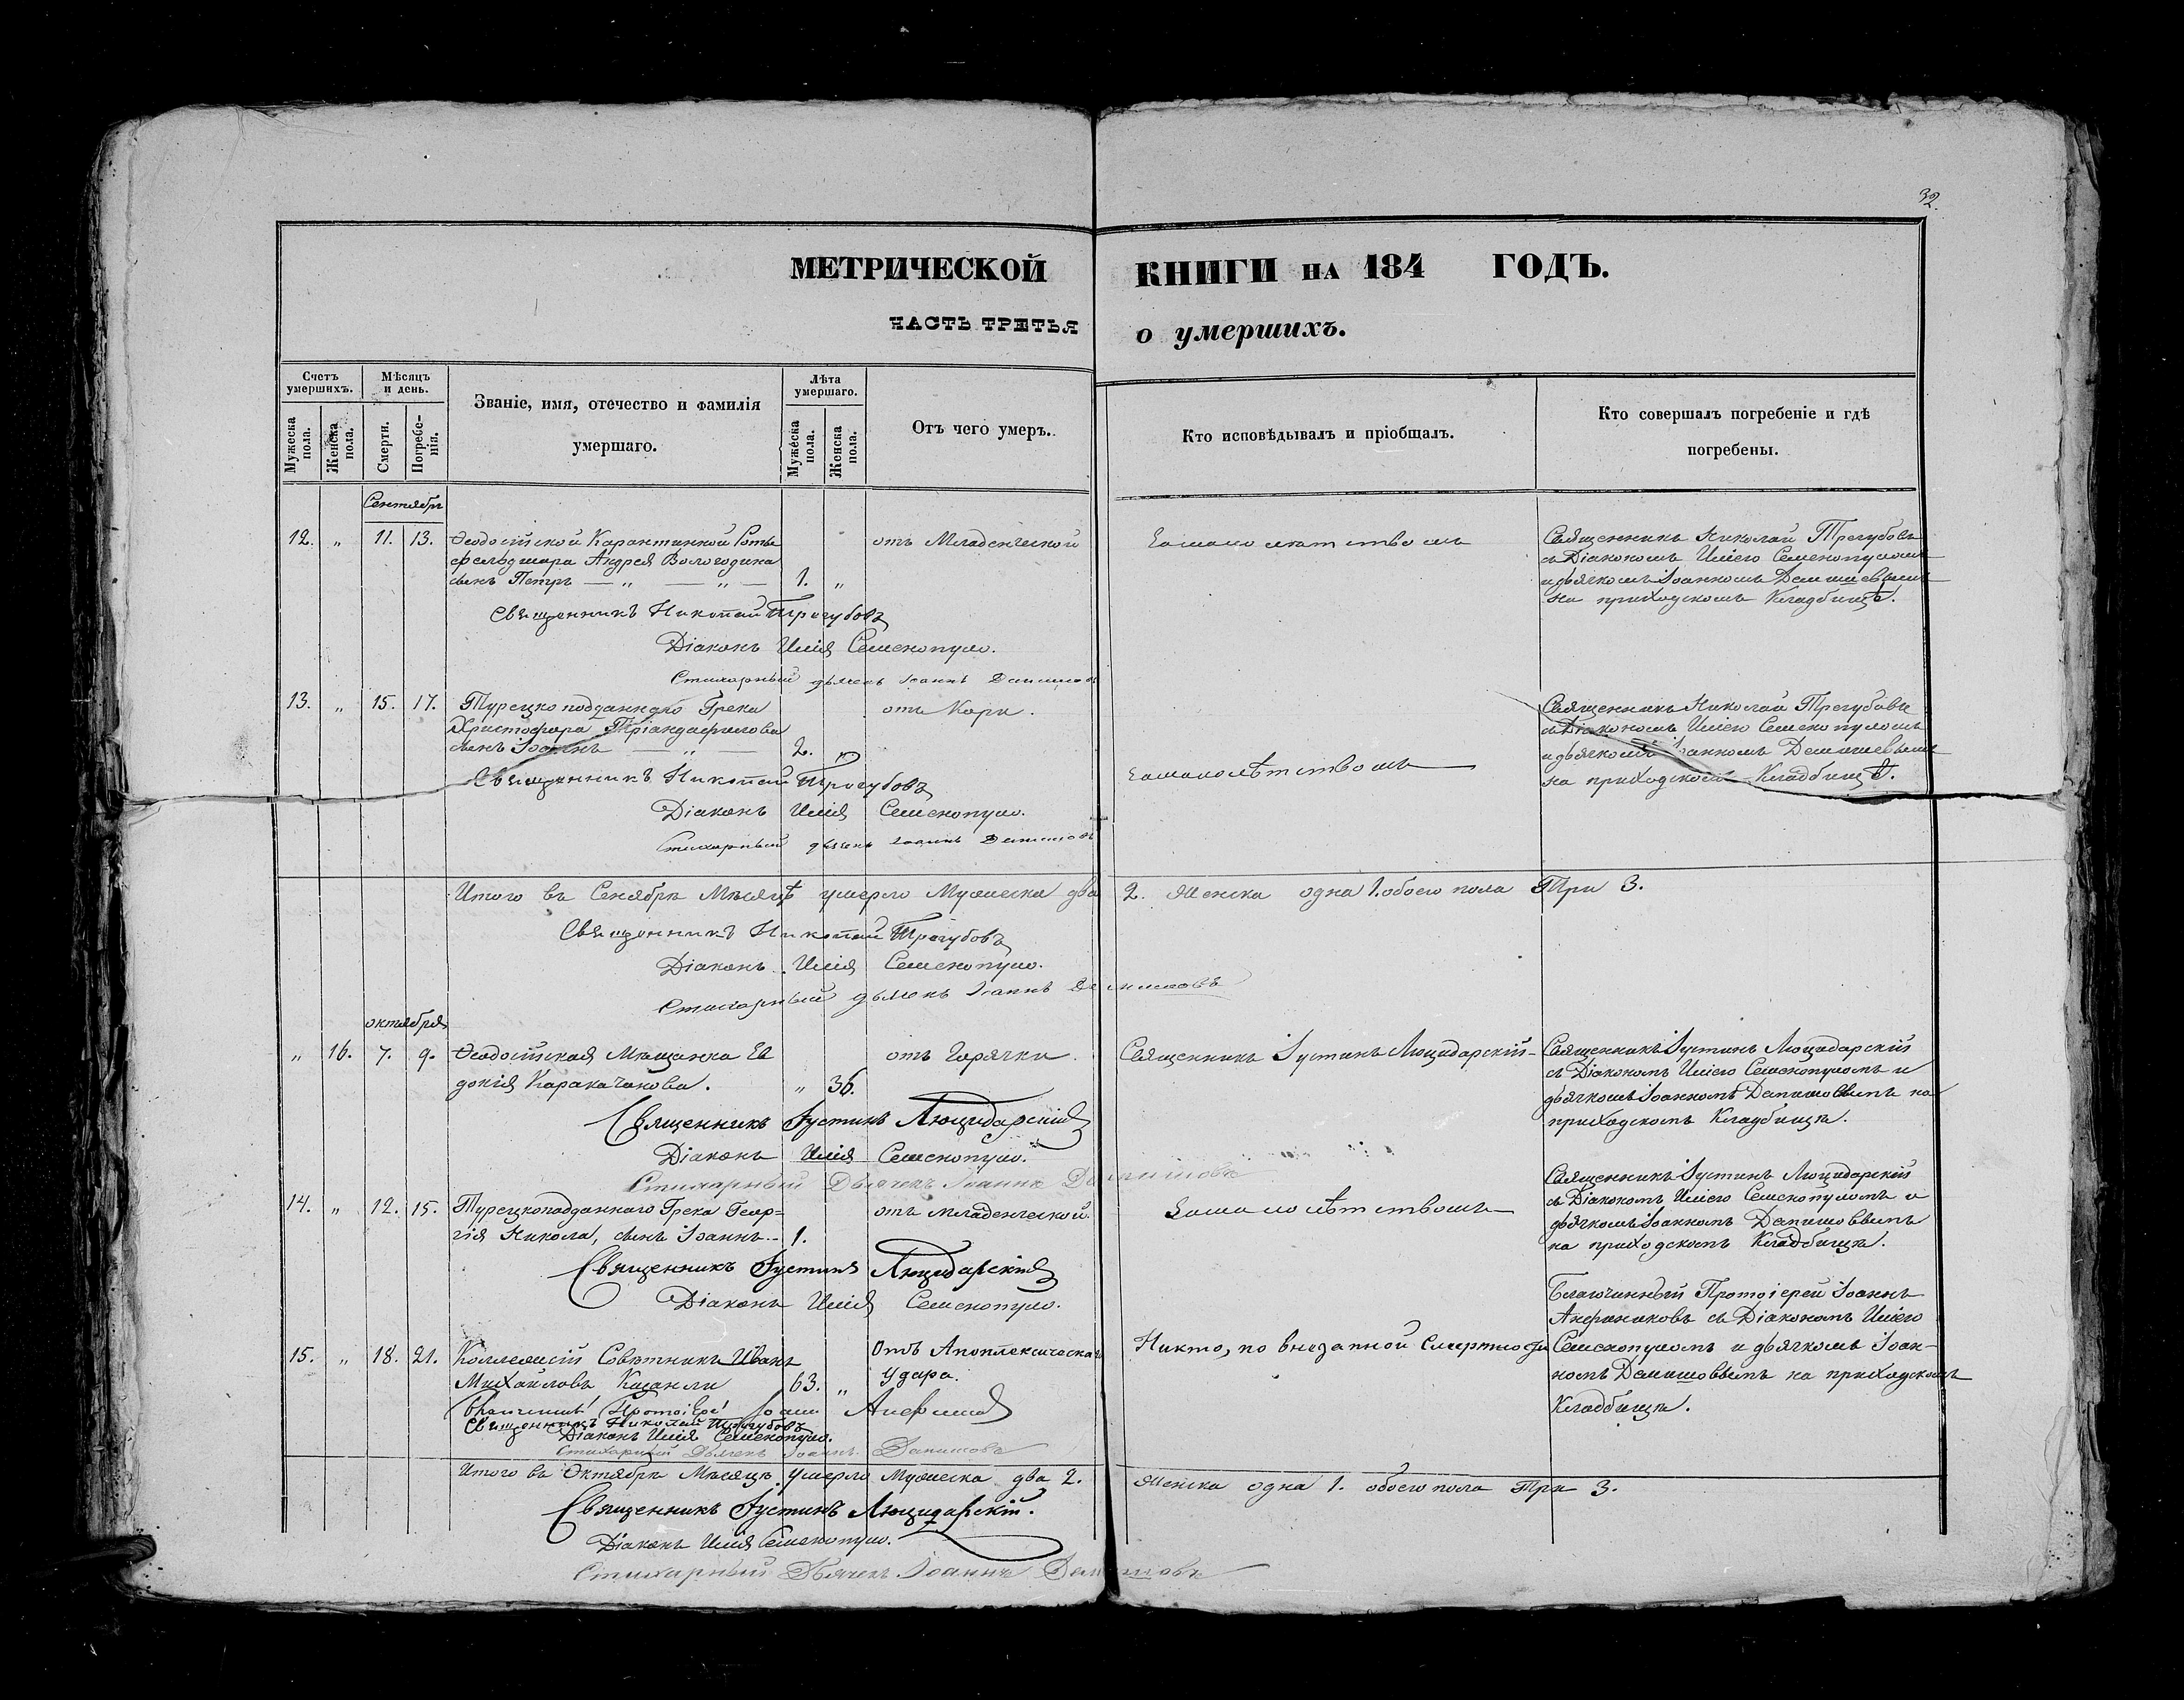 32.
МЕТРИЧЕСКОЙ КНИГИ НА 184 ГОДЪ.
ЧАСТЬ ТРЕТЬЯ о умершихъ.
Счетъ умершихъ.
Мѣсяцъ и день.
Званіе, имя, отечество и фамилія умершаго.
Лѣта умершаго.
Отъ чего умеръ.
Кто исповѣдывалъ и пріобщалъ.
Кто совершалъ погребеніе и гдѣ погребены.
Мужеска пола.
Женска пола.
Смерти.
Погребенія.
Мужеска пола.
Женска пола.
Сентябрь
12. „ 11. 13. Ѳеодосійской Карантинной Роты
фельдшера Андрея Вологодина
сынъ Петръ — „ — „ — 1. „
отъ Младенческой
За малолѣтствомъ
Священникъ Николай Трегубовъ
съ Діакономъ Иліею Семенопуломъ
и дьячкомъ Іоанномъ
на приходскомъ Кладбищѣ.
Священникъ Николай Трегубовъ
Діаконъ Илія Семенопуло.
Стихарный дьячекъ Іоаннъ
13. „ 15. 17. Турецкоподданнаго Грека
Христофора Тріандафилова
сынъ Іоаннъ — „ — 2. „
отъ Кори.
За малолѣтствомъ
Священникъ Николай Трегубовъ
съ Діакономъ Иліею Семенопуломъ
и дьячкомъ Іоанномъ
на приходскомъ Кладбищѣ.
Священникъ Николай Трегубовъ
Діаконъ Илія Семенопуло.
Стихарный дьячекъ Іоаннъ
Итого въ Сенябрѣ Мѣсяцѣ умерло Мужеска два 2. Женска одна 1. обоего пола Три 3.
Священникъ Николай Трегубовъ
Діаконъ Илія Семенопуло.
Стихарный дьячекъ Іоаннъ
октября
„ 16. 7. 9. Ѳеодосійская Мѣщанка Ев
докія Каракачанова. „ 36.
отъ Горячки.
Священникъ Іустинъ Люцидарскій
Священникъ Іустинъ Люцидарскій
съ Діакономъ Иліею Семенопуломъ и
дьячкомъ Іоанномъ на
приходскомъ Кладбищѣ.
Священникъ Іустинъ Люцидарскій
Діаконъ Илія Семенопуло.
Стихарный Дьячекъ Іоаннъ
14. „ 12. 15. Турецкоподданнаго Грека Геор=
гія Никола, сынъ Іоаннъ 1.
отъ младенческой.
За малолѣтствомъ
Священникъ Іустинъ Люцидарскій
съ Діакономъ Иліею Семенопуломъ и
дьячкомъ Іоанномъ
на приходскомъ Кладбищѣ.
Священникъ Іустинъ Люцидарскій
Діаконъ Илія Семенопуло.
15. „ 18. 21. Коллежскій Совѣтникъ Иванъ
Михайловъ Казанли 63. „
Отъ Апоплексическаго
Удара.
Никто, по внезапной Смертности
Благочинный Протоіерей Іоаннъ
съ Діакономъ Иліею
Семенопуломъ и дьячкомъ Іоан-
номъ на приходскомъ
Кладбищѣ.
Благочинный Протоіерей Іоаннъ
Священникъ Николай Трегубовъ
Діаконъ Илія Семенопуло.
Стихарный Дьячекъ Іоаннъ
Итого въ Октябрѣ Мѣсяцѣ умерло Мужеска два 2. Женска одна 1. обоего пола Три 3.
Священникъ Іустинъ Люцидарскій.
Діаконъ Илія Семенопуло.
Стихарный Дьячекъ Іоаннъ